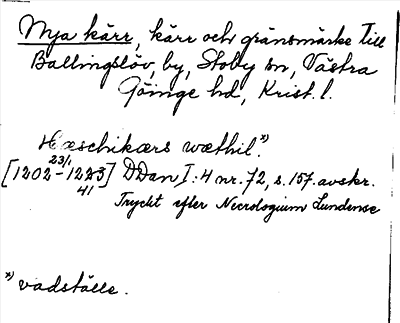 Mya kärr, kärr och gränsmärke till
Ballingslöv, by, Stoby sn, Västra
Göinge hd, Krist. l.
Hæschikærs wæthil.*)
[1202 23/1 - 1223 41] DDan I:4 nr. 72, s. 157. avskr.
Tryckt efter Necrologium Lundense
*) vadställe.